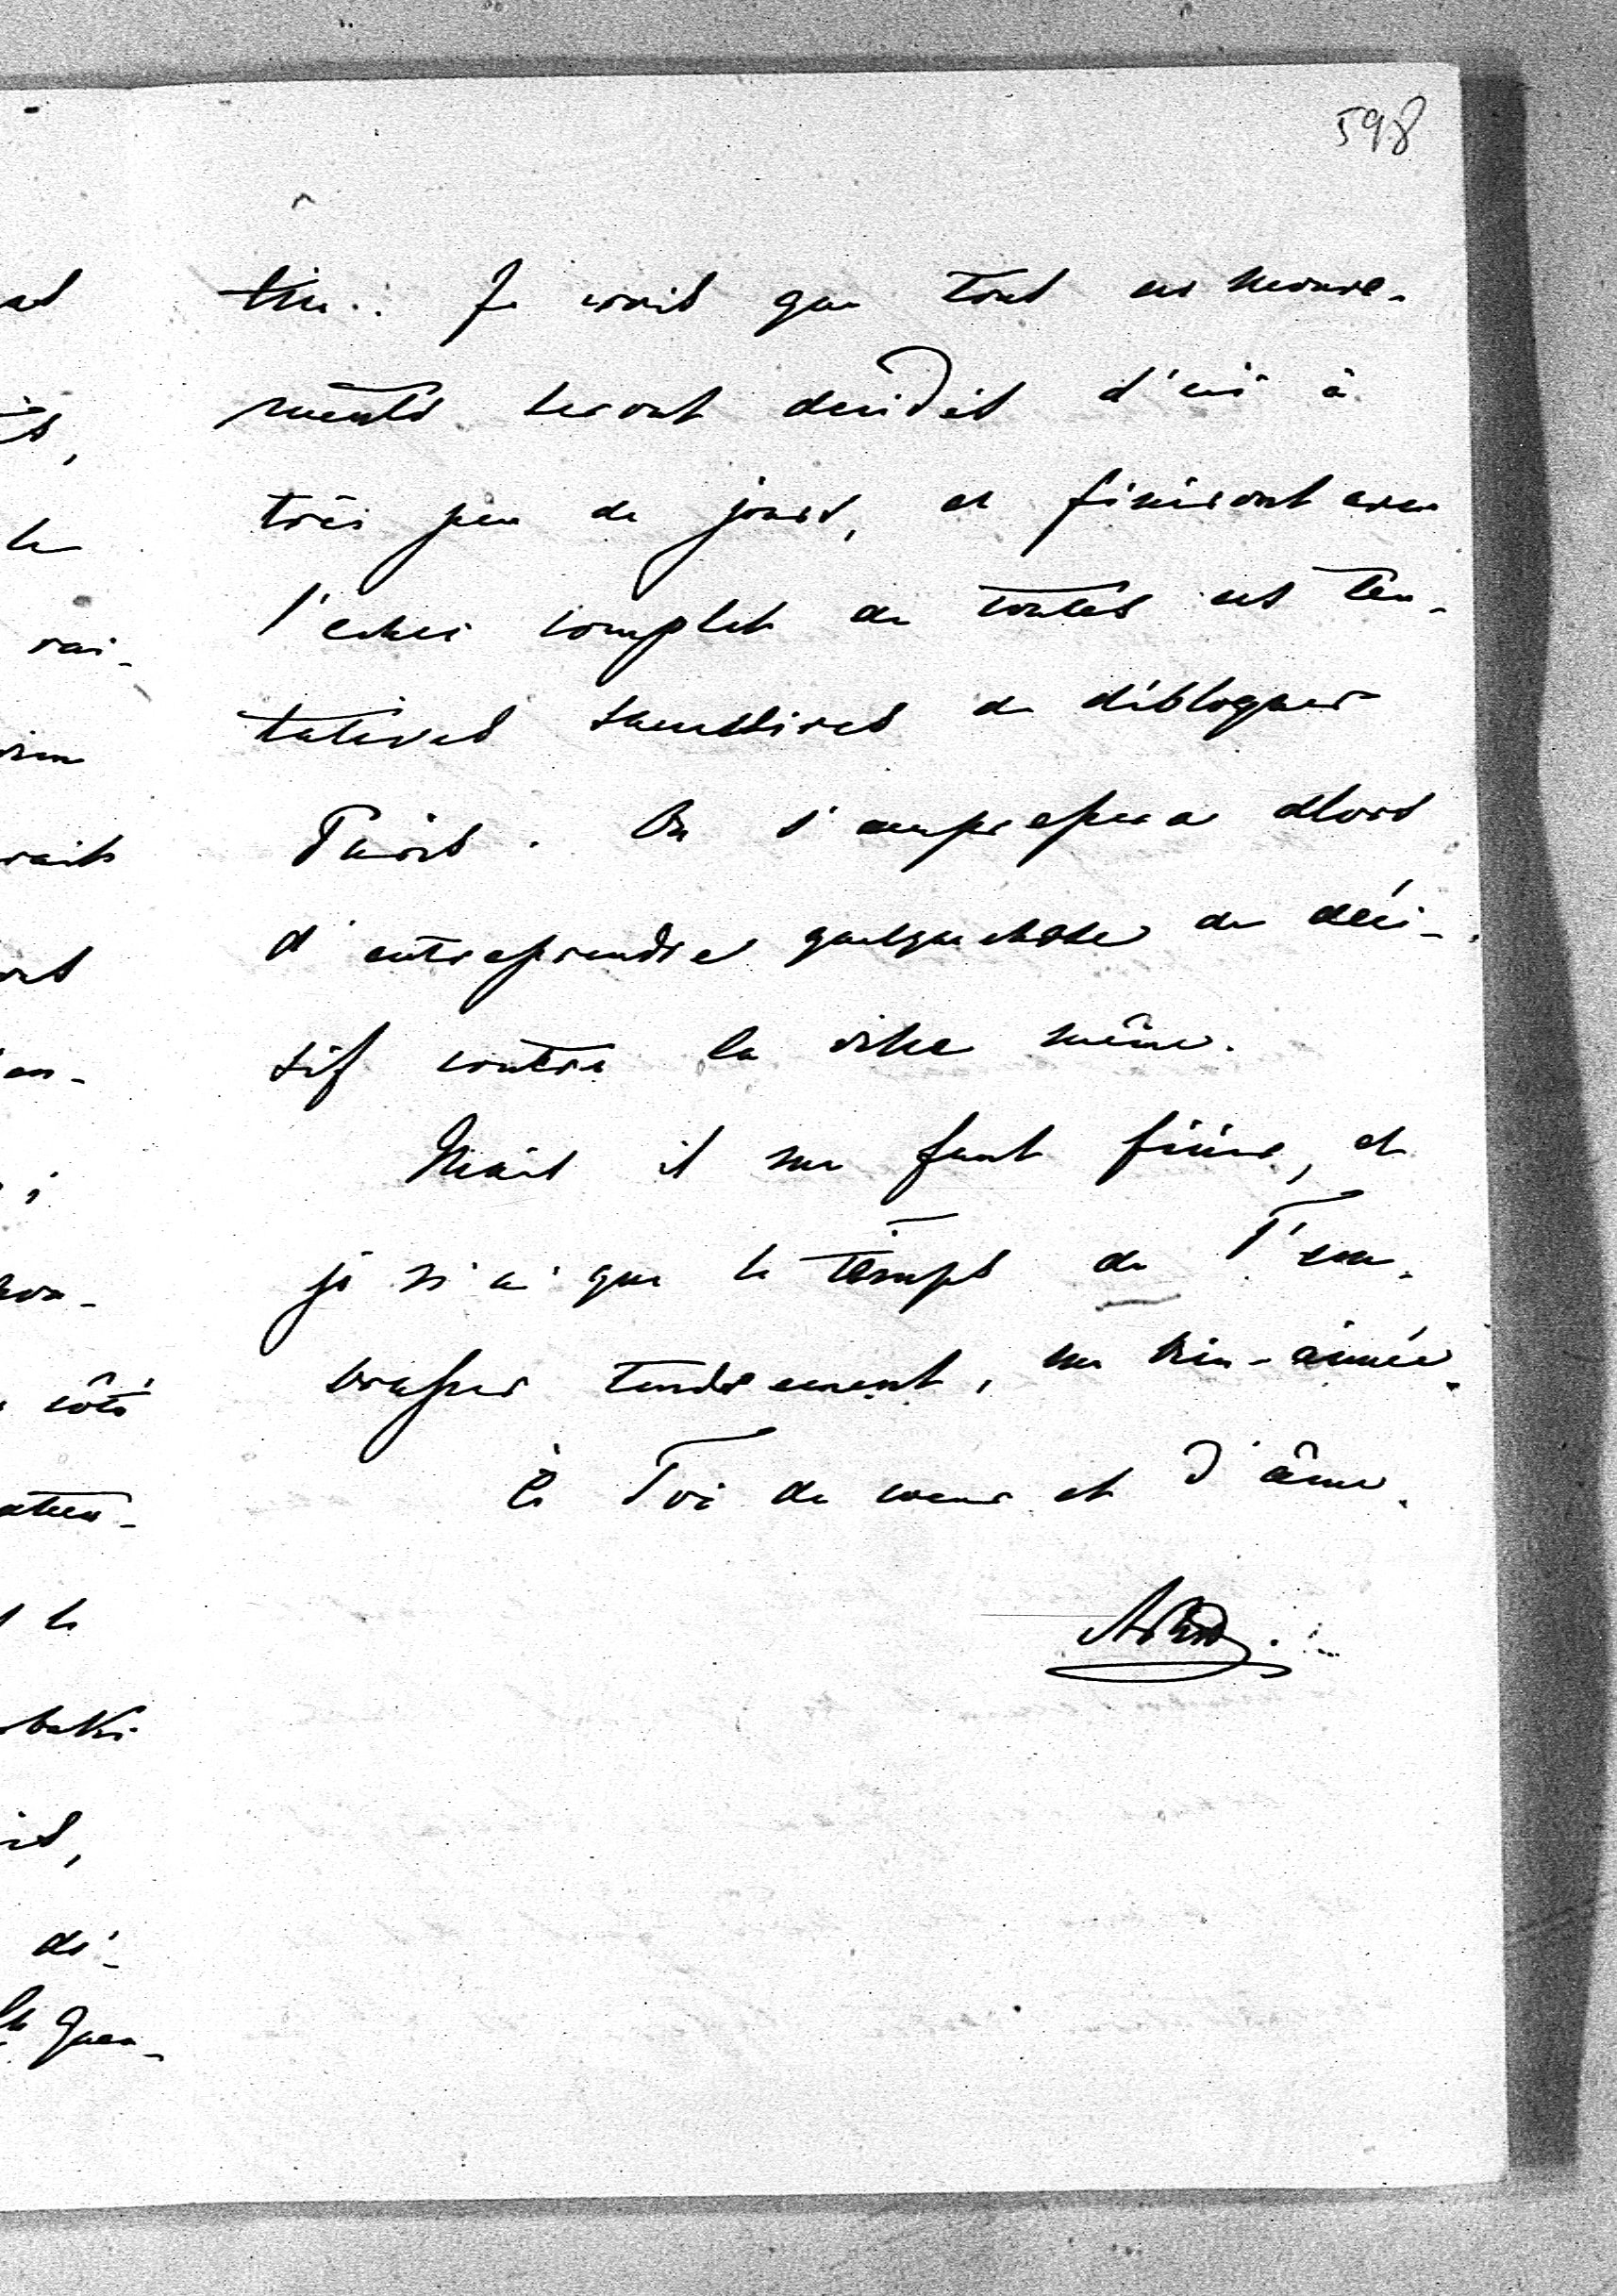 598
tin. Je crois que tout ces mouve-
ments seront décidés d'ici à
très peu de jours, et finiront avec
l'echec complet de toutes ces ten-
tatives successives de débloquer
Paris. On s'empressera alors
d'entreprendre quelquechose de déci-
sif contre la ville même.
Mais il me faut finir, et
je n'ai que le temps de T'em-
brasser tendrement, ma bien-aimée.
à Toi de coeur et d'âme.
et
s,
le
rai-
rait
côté
t le
dé-
St Quen-